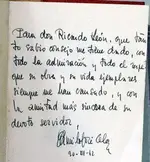 Para don Ricardo León, que tan-
to sabio consejo me tiene dado, con
toda la admiración y todo el respe
que su obra y su vida ejemplares
siempre me han causado, y con
la amistad más sincera de su
devoto servidor